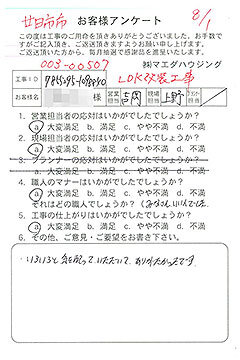 廿日市市 お客様アンケート 8/1
この度は工事のご用命を頂きありがとうございました。お手数で
すがご記入頂き、ご返送頂きますようお願い申し上げます。
ご返送頂いた方から、毎月抽選で感謝品を進呈いたします。
003-00507 ㈱マエダハウジング
工事ID LDK改装工事
お客様名 様 営業担当 吉岡 現場担当 上野
1. 営業担当者の応対はいかがでしたでしょうか?
a. 大変満足 b. 満足 c. やや不満 d. 不満
2. 現場担当者の応対はいかがでしたでしょうか?
a. 大変満足 b. 満足 c. やや不満 d. 不満
3. プランナーの応対はいかがでしたでしょうか?
a. 大変満足 b. 満足 c. やや不満 d. 不満
4. 職人のマナーはいかがでしたでしょうか?
a. 大変満足 b. 満足 c. やや不満 d. 不満
それはどの職人でしょうか?
5. 工事の仕上がりはいかがでしたでしょうか?
a. 大変満足 b. 満足 c. やや不満 d. 不満
6. その他、ご意見・ご要望をお書き下さい。
いろいろと気を配っていただいて、ありがたかったです